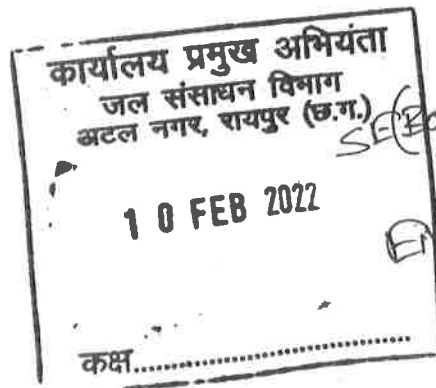 कार्यालय प्रमुख अभियंता
जल संसाधन विभाग
अटल नगर, रायपुर (छ.ग.)
SE(
10 FEB 2022
कक्ष..............................